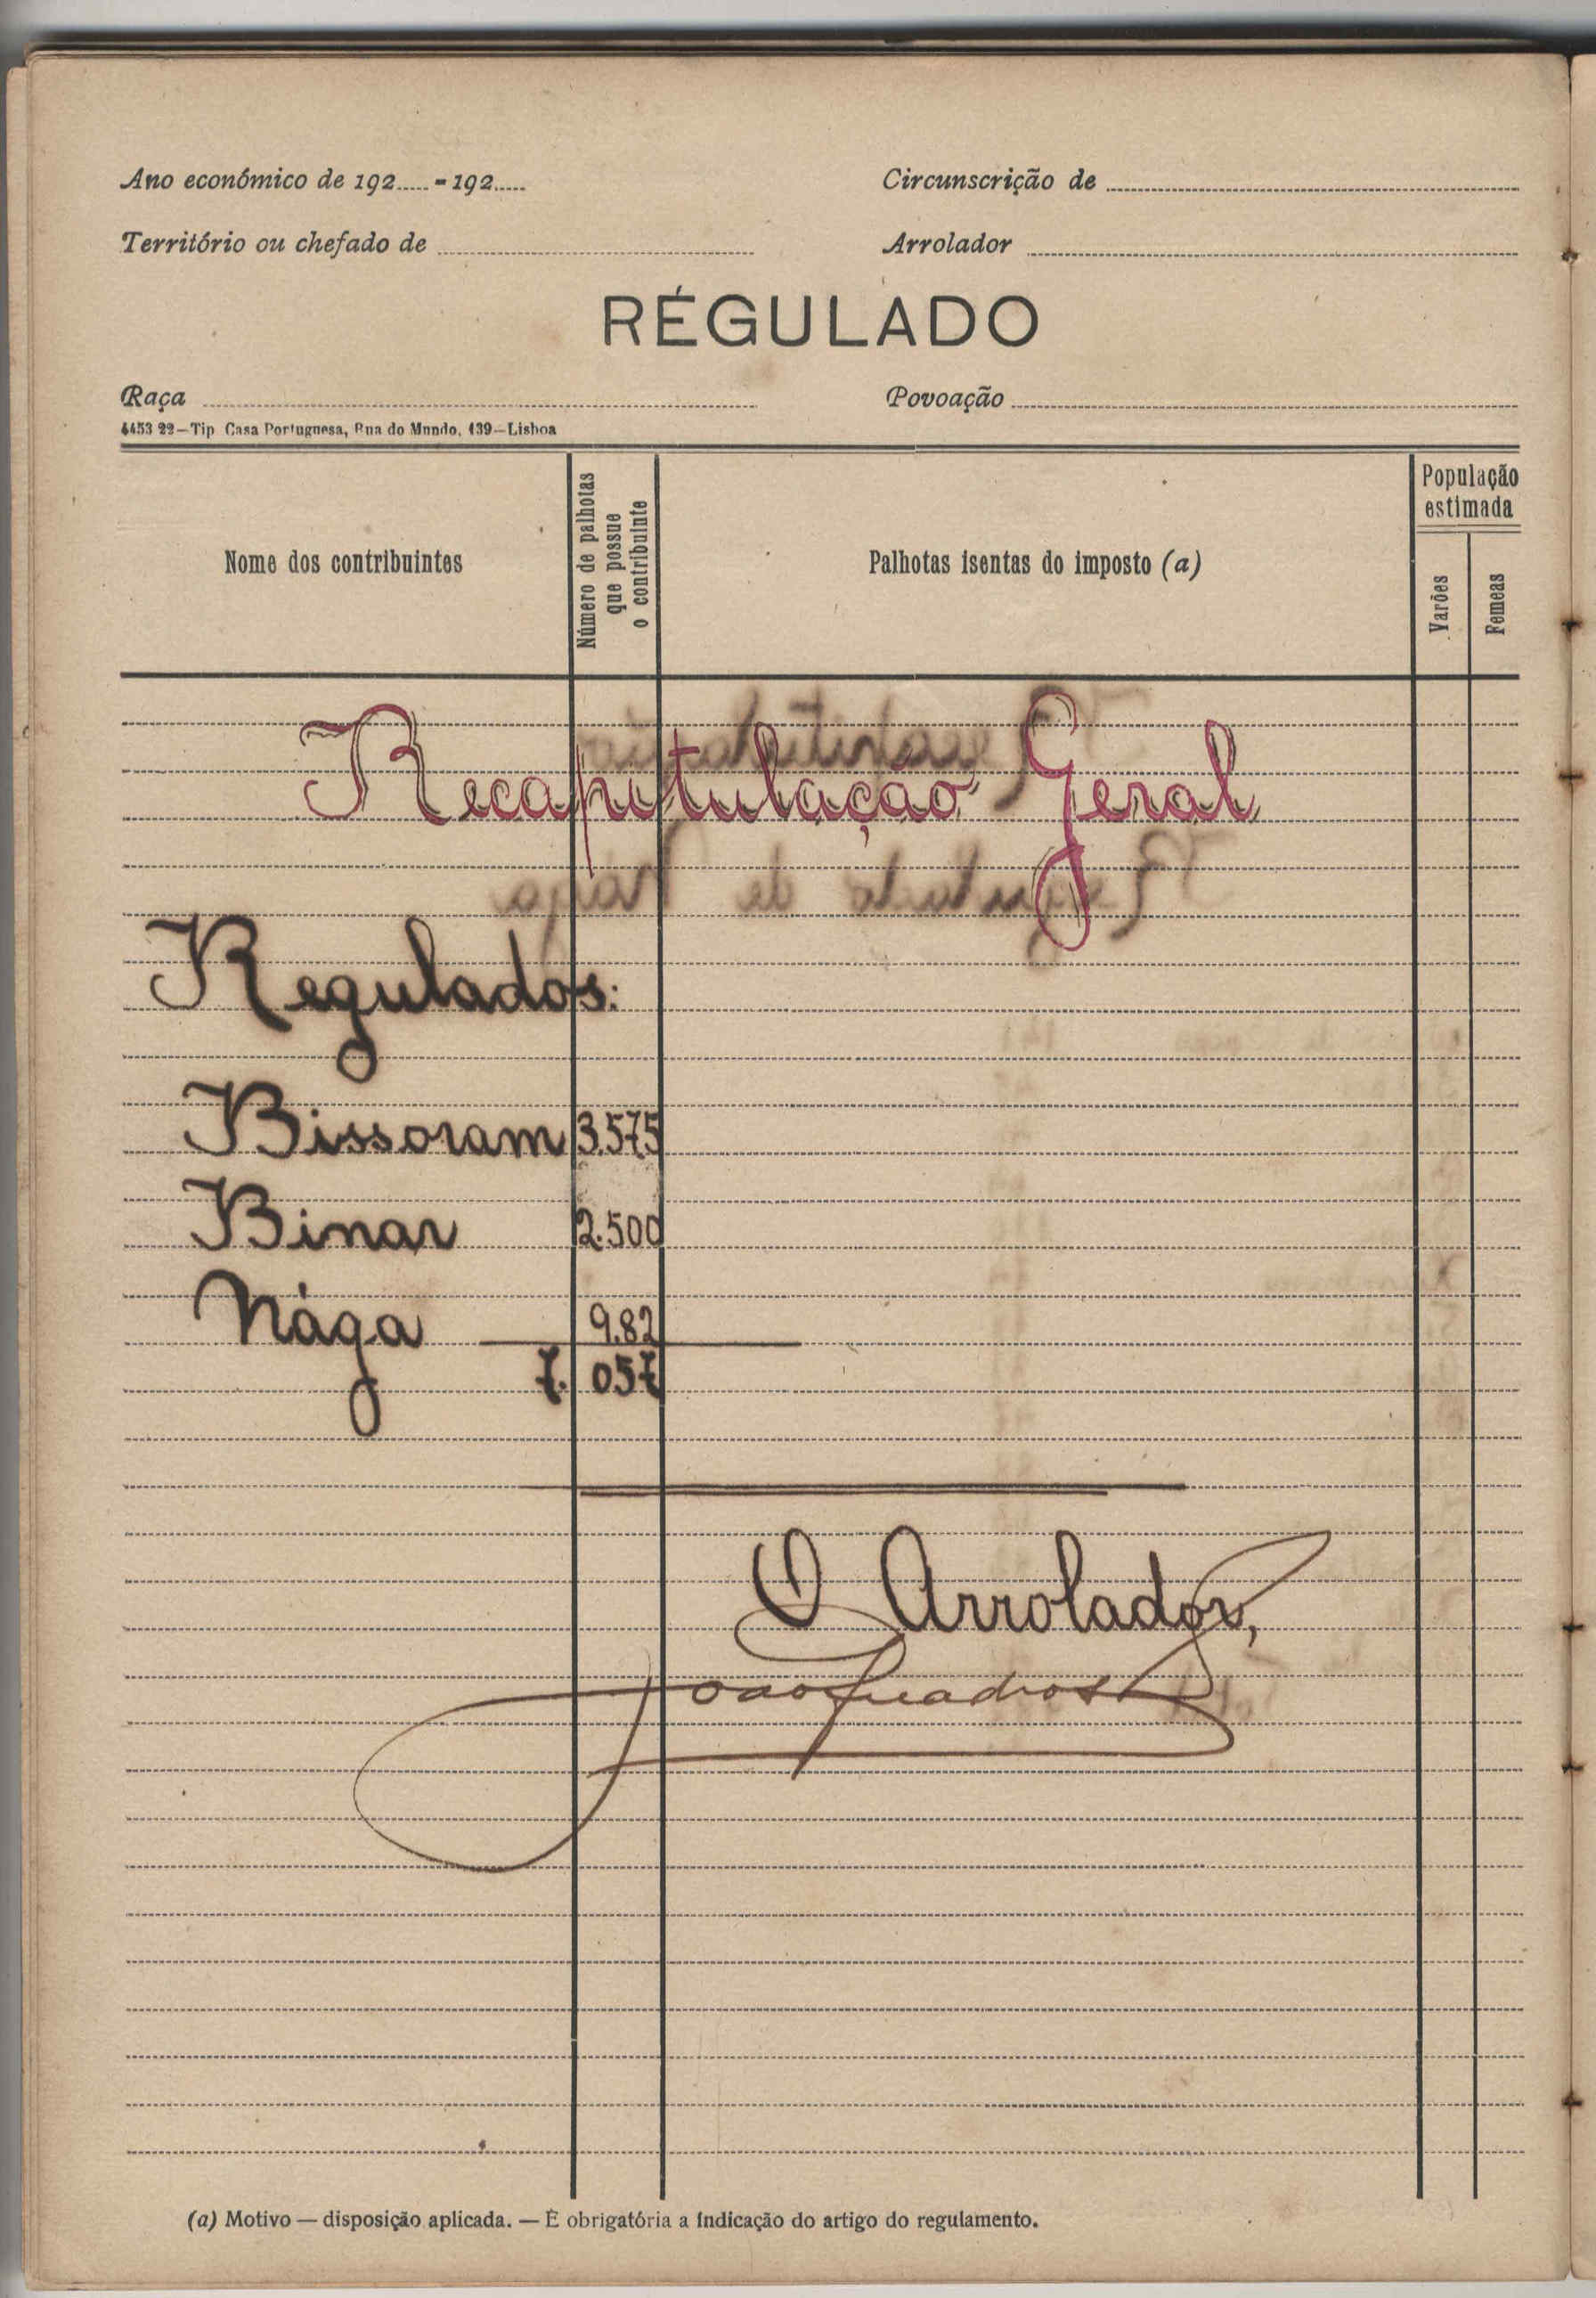 Ano económico de 192..... - 192.....
Circunscrição de
Território ou chefado de
Arrolador
RÉGULADO
Raça
Povoação
4453 22—Tip Casa Portuguesa, Rua do Mundo, 139—Lisboa
Nome dos contribuintes
Número de palhotas que possue o contribuinte
Palhotas isentas do imposto (a)
População estimada
Varões
Femeas
Recapitulação Geral
Regulados:
Bissoram 3.575
Binar 2.500
Nága 9.82
7.057
O Arrolador,
João Quadros
(a) Motivo — disposição aplicada. — É obrigatória a indicação do artigo do regulamento.